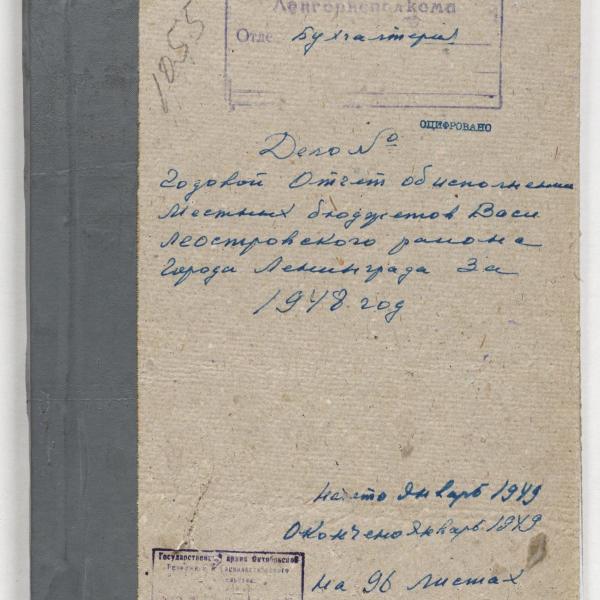 Ленгорисполкома
Отде Бухгалтерия
1055
ОЦИФРОВАНО
Дело №
Годовой Отчет об исполнении
Местных бюджетов Васи
леостровского района
Города Ленинграда За
1948 год
Начато Январь 1949
Окончено Январь 1949
Государственный архив Октябрьской
На 96 листах